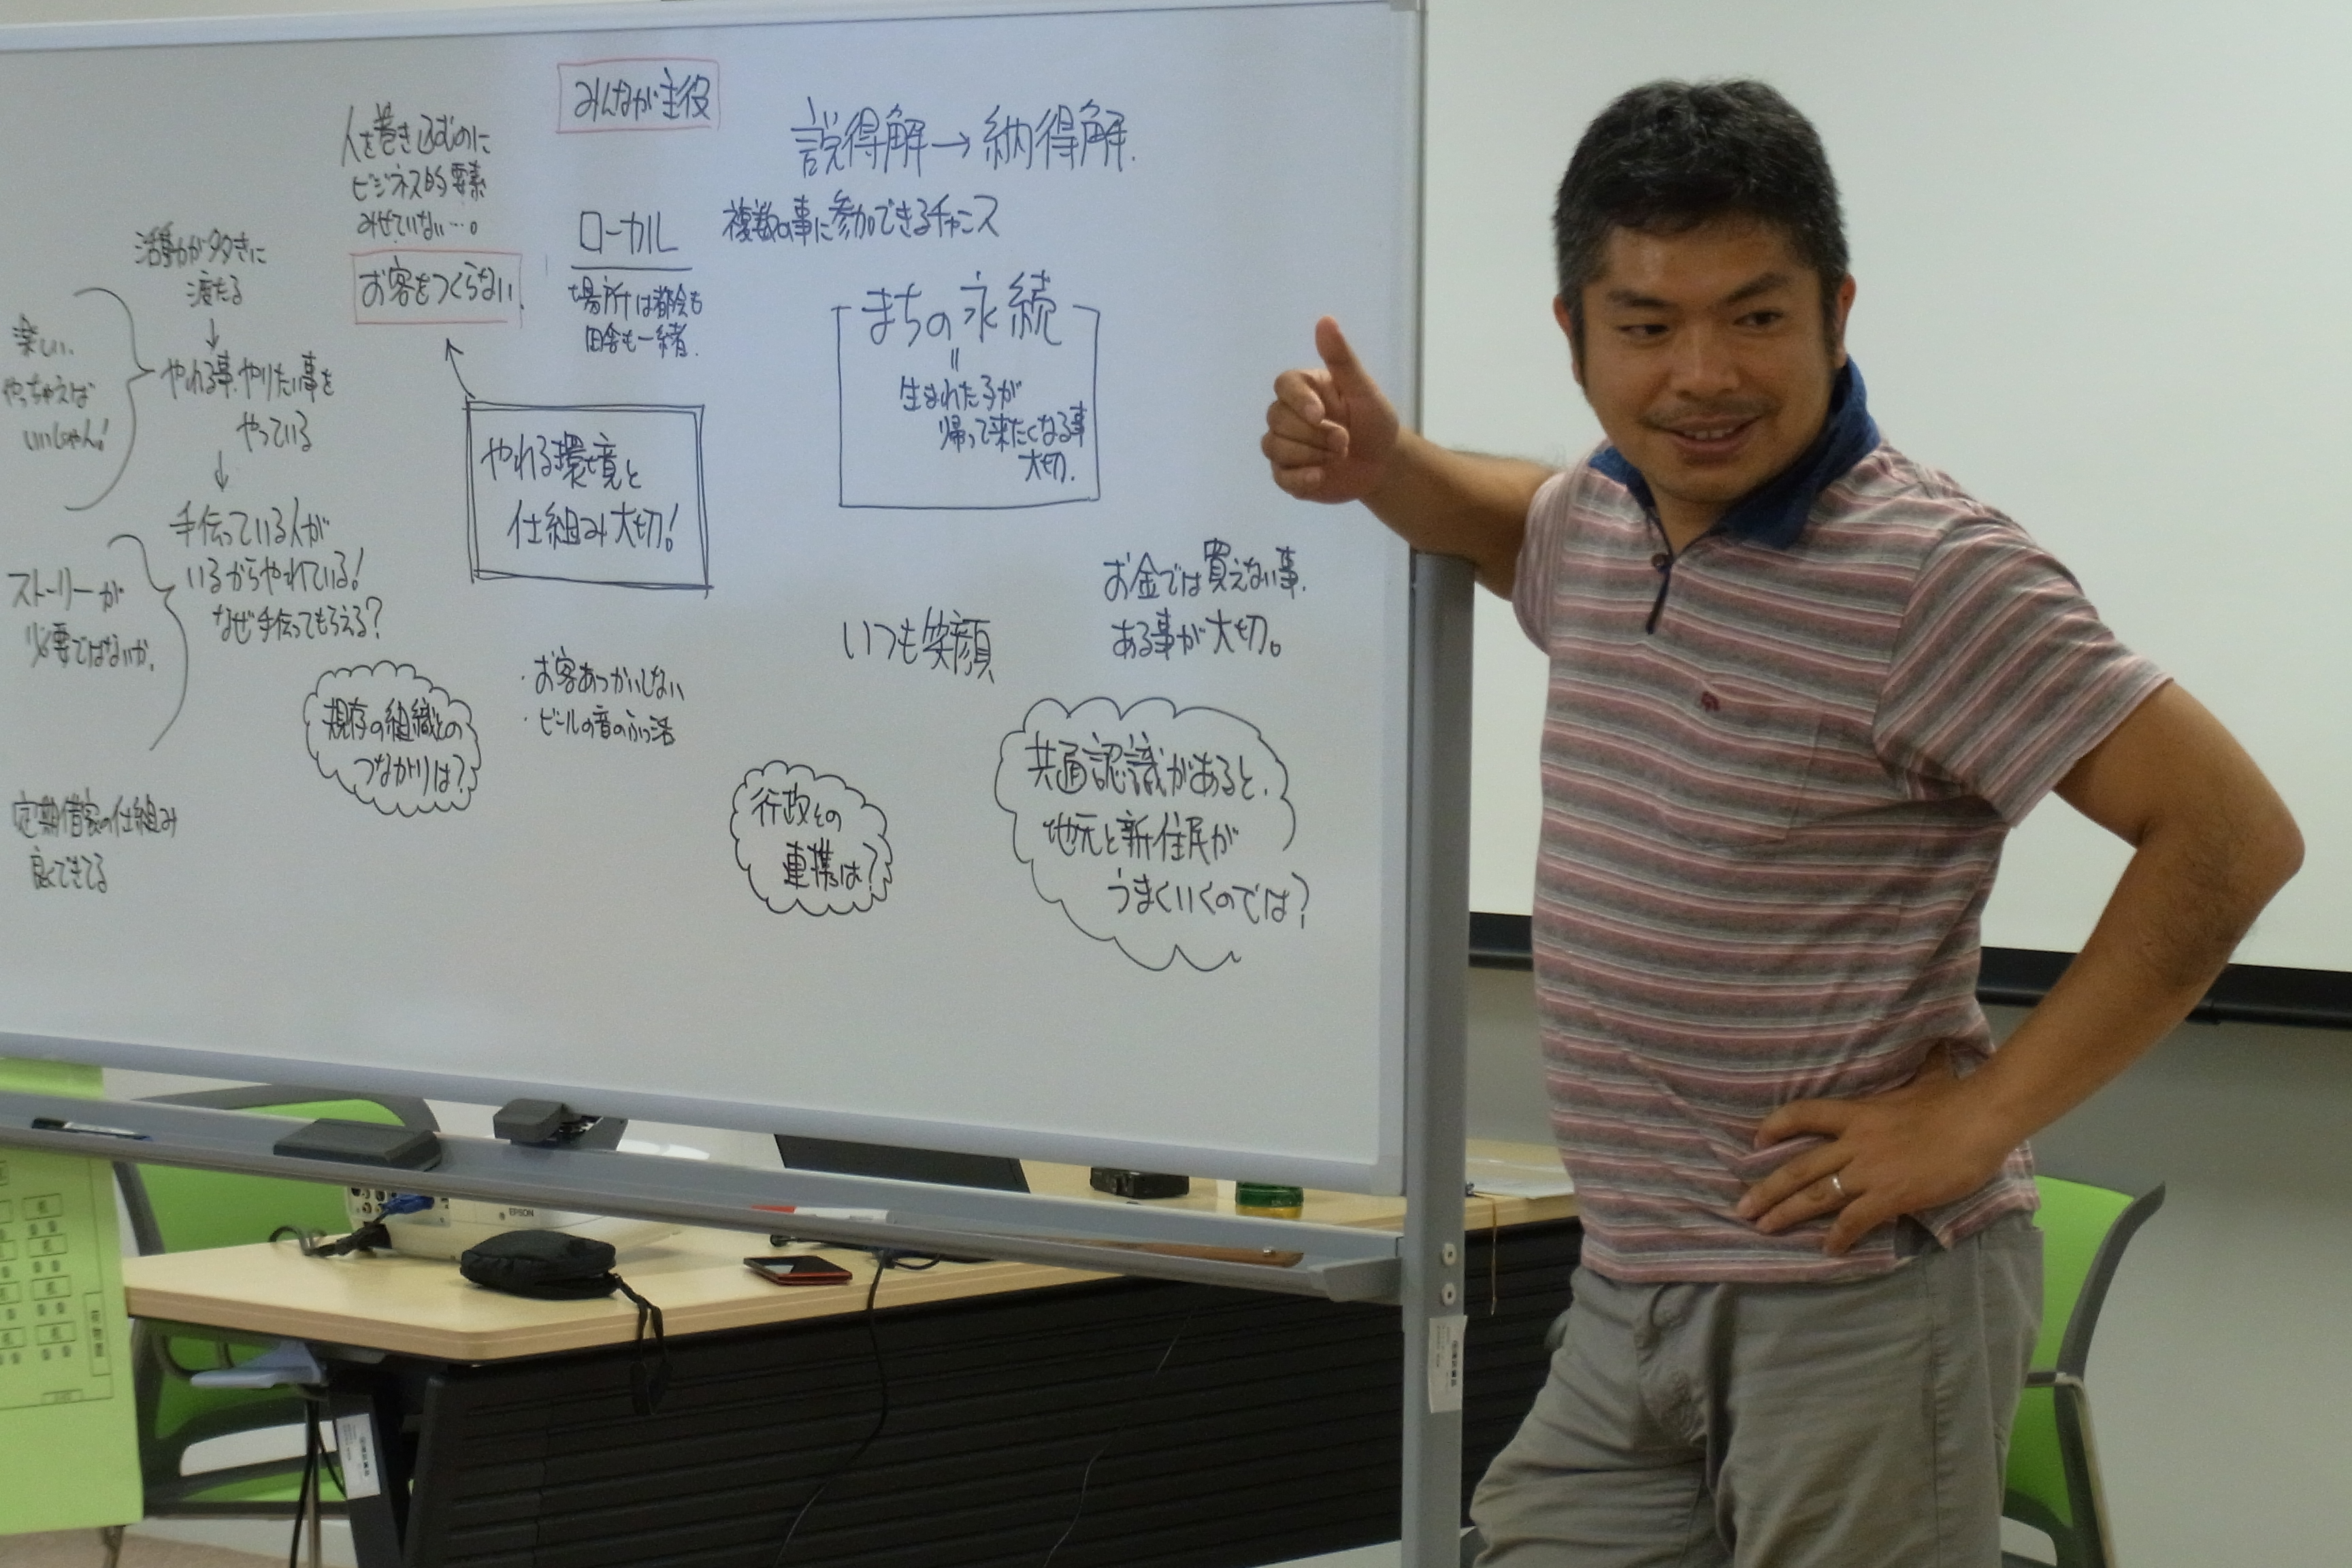 みんなが主役
人を巻き込むのに
ビジネス的要素
みせていない…。
お客をつくらない
説得解→納得解.
複数の事に参加できるチャンス
ローカル
場所は都会も
田舎も一緒.
まちの永続
=
生まれた子が
帰って来たくなる事
大切.
活動が多きに
渡たる
↓
やれる事.やりたい事を
やっている
↓
手伝っている人が
いるからやれている!
なぜ手伝ってもらえる?
楽しい.
やっちゃえば
いいじゃん!
ストーリーが
必要ではないか.
やれる環境と
仕組み大切!
お金では買えない事.
ある事が大切。
いつも笑顔
・お客あつかいしない
・ビールの音のふっ活
規存の組織との
つながりは?
行政との
連携は?
共通認識があると.
地元と新住民が
うまくいくのでは?
定期借家の仕組み
良くできてる
EPSON
机
机
机
机
机
荷物置